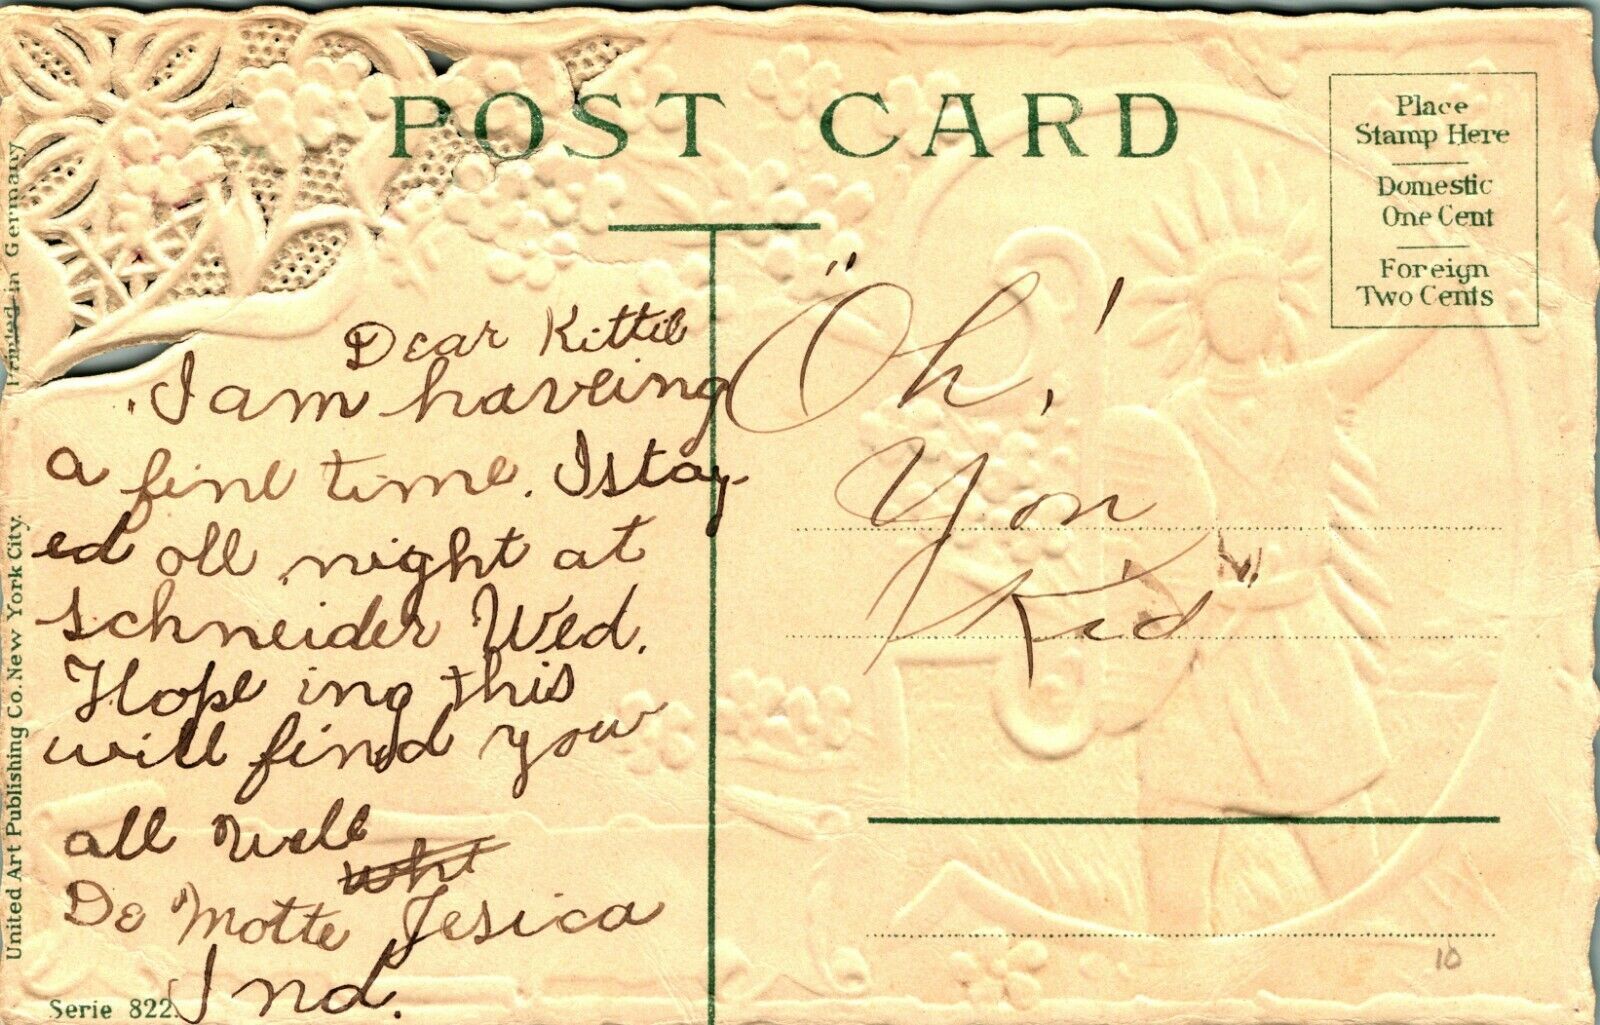 POST CARD
Place
Stamp Here
Domestic
One Cent
Foreign
Two Cents
Dear Kittie
I am haveing
a fine time. I stay-
ed all night at
schneider Wed.
Hope ing this
will find you
all well
De Motte Jesica
Ind.
"Oh!
You
Kid"
10
Printed in Germany
United Art Publishing Co. New York City.
Serie 822.